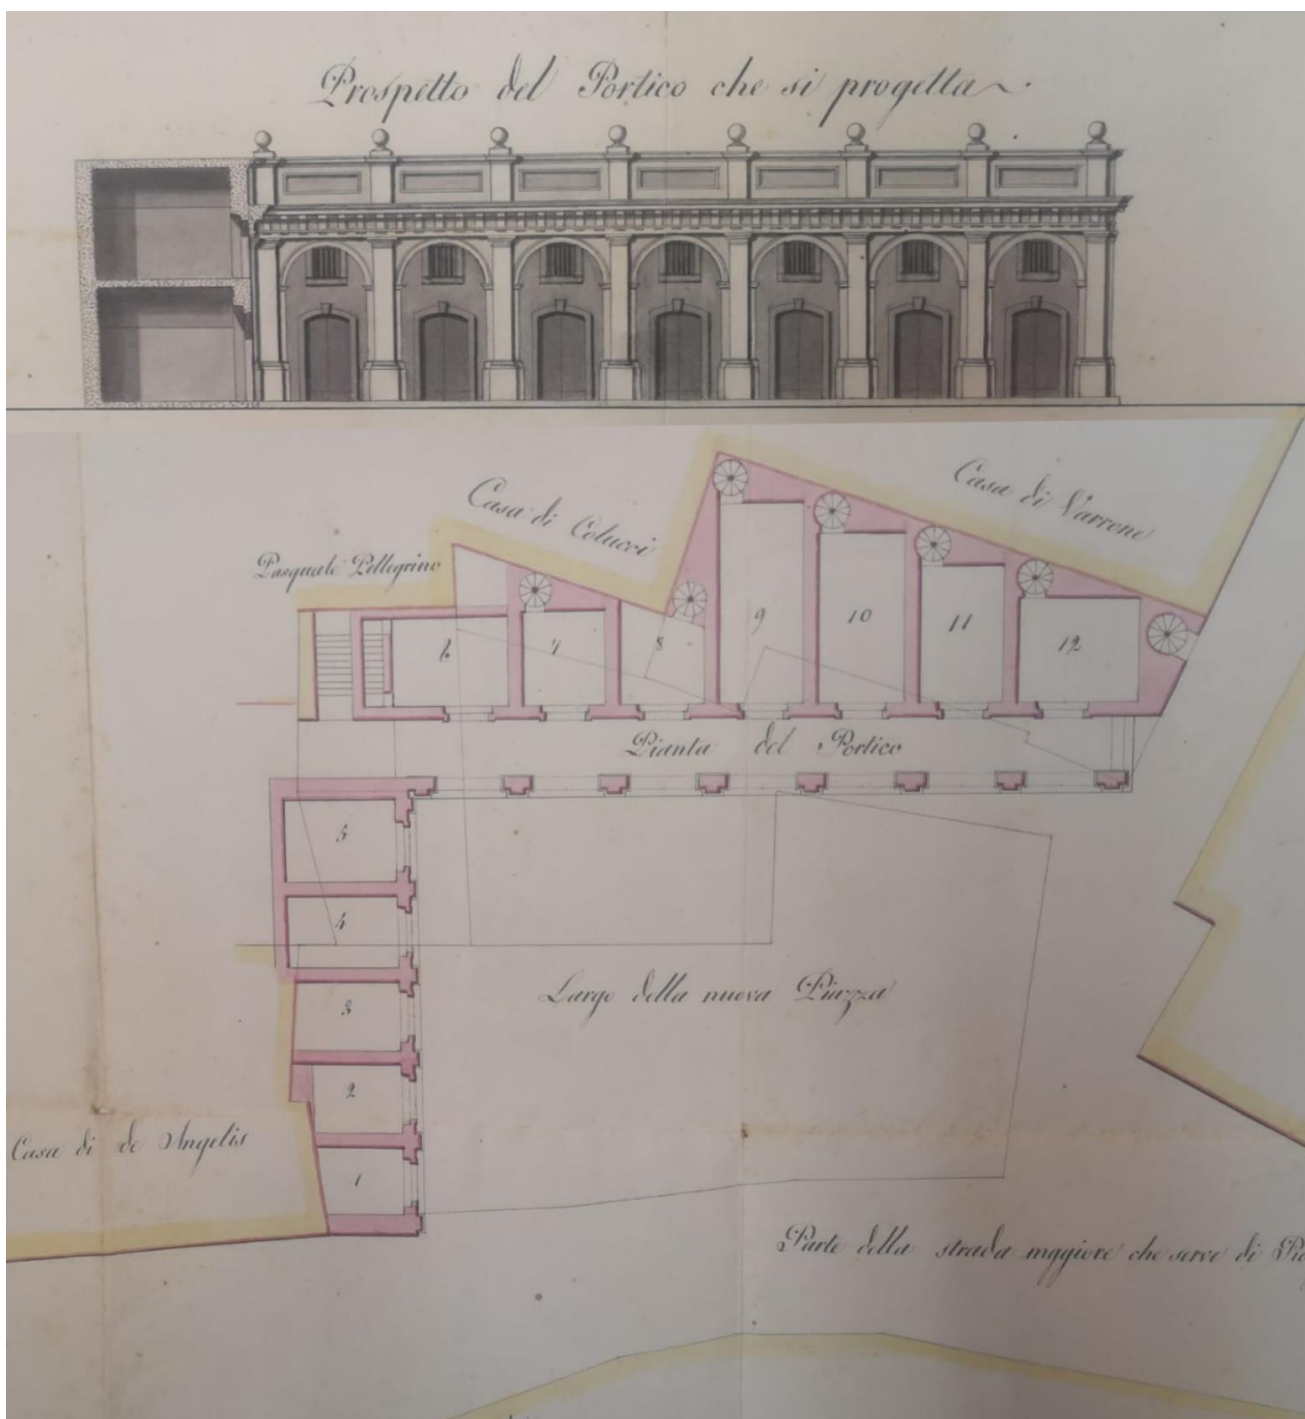 Prospetto del Portico che si progetta
Casa di Varrone
Casa di Colucci
Pasquale Pellegrino
6
7
8
9
10
11
12
Pianta del Portico
5
4
3
2
1
Largo della nuova Piazza
Casa di de Angelis
Parte della strada mggiore che serve di